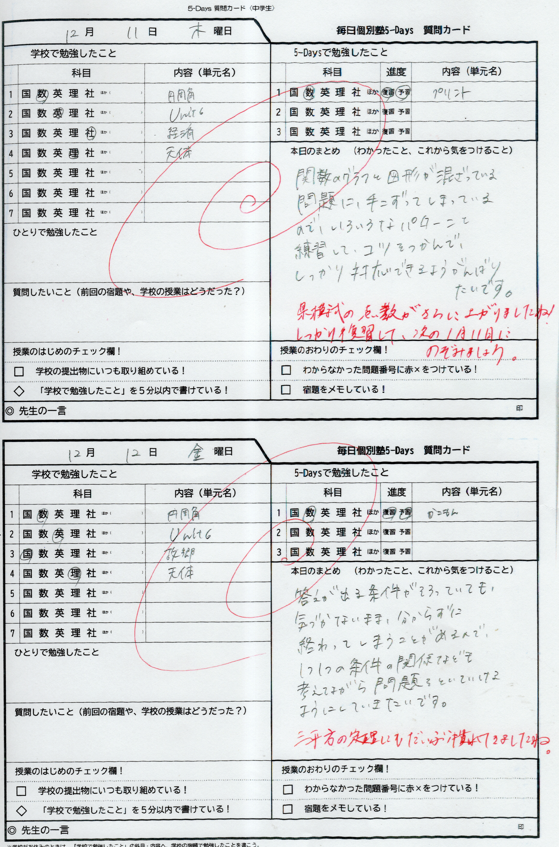 5-Days 質問カード（中学生）
12月 11日 木曜日
毎日個別塾5-Days 質問カード
学校で勉強したこと
5-Daysで勉強したこと
科目 内容（単元名）
科目 進度 内容（単元名）
1 国 数 英 理 社 ほか（ ） 円周角
1 国 数 英 理 社 ほか 復習 予習 プリント
2 国 数 英 理 社 ほか（ ） Unit 6
2 国 数 英 理 社 ほか 復習 予習
3 国 数 英 理 社 ほか（ ） 経済
3 国 数 英 理 社 ほか 復習 予習
4 国 数 英 理 社 ほか（ ） 天体
5 国 数 英 理 社 ほか（ ）
6 国 数 英 理 社 ほか（ ）
7 国 数 英 理 社 ほか（ ）
本日のまとめ （わかったこと、これから気をつけること）
関数のグラフと図形が混ざっている
問題に、手こずってしまっている
ので、いろいろなパターンを
練習して、コツをつかんで、
しっかり対応できるようがんばり
たいです。
ひとりで勉強したこと
質問したいこと（前回の宿題や、学校の授業はどうだった？）
県模試の点数がさらに上がりましたね！
しっかり復習して、次の1月11日に
のぞみましょう。
授業のはじめのチェック欄！
□ 学校の提出物にいつも取り組めている！
◇ 「学校で勉強したこと」を5分以内で書けている！
授業のおわりのチェック欄！
□ わからなかった問題番号に赤×をつけている！
□ 宿題をメモしている！
◎ 先生の一言 印
12月 12日 金曜日
毎日個別塾5-Days 質問カード
学校で勉強したこと
5-Daysで勉強したこと
科目 内容（単元名）
科目 進度 内容（単元名）
1 国 数 英 理 社 ほか（ ） 円周角
1 国 数 英 理 社 ほか 復習 予習 かこもん
2 国 数 英 理 社 ほか（ ） Unit 6
2 国 数 英 理 社 ほか 復習 予習
3 国 数 英 理 社 ほか（ ） 故郷
3 国 数 英 理 社 ほか 復習 予習
4 国 数 英 理 社 ほか（ ） 天体
5 国 数 英 理 社 ほか（ ）
6 国 数 英 理 社 ほか（ ）
7 国 数 英 理 社 ほか（ ）
本日のまとめ （わかったこと、これから気をつけること）
答えが出る条件がそろっていても、
気づかないまま、分からずに
終わってしまうことがあるので、
1つ1つの条件の関係などを
考えながら問題をといていける
ようにしていきたいです。
ひとりで勉強したこと
質問したいこと（前回の宿題や、学校の授業はどうだった？）
三平方の定理にもだいぶ慣れてきましたね。
授業のはじめのチェック欄！
□ 学校の提出物にいつも取り組めている！
◇ 「学校で勉強したこと」を5分以内で書けている！
授業のおわりのチェック欄！
□ わからなかった問題番号に赤×をつけている！
□ 宿題をメモしている！
◎ 先生の一言 印